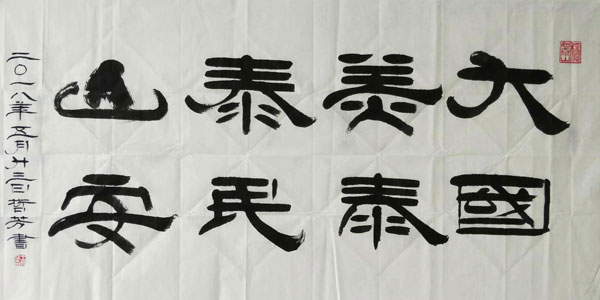 大美泰山
國泰民安
二〇一八年五月廿三日哲芳書